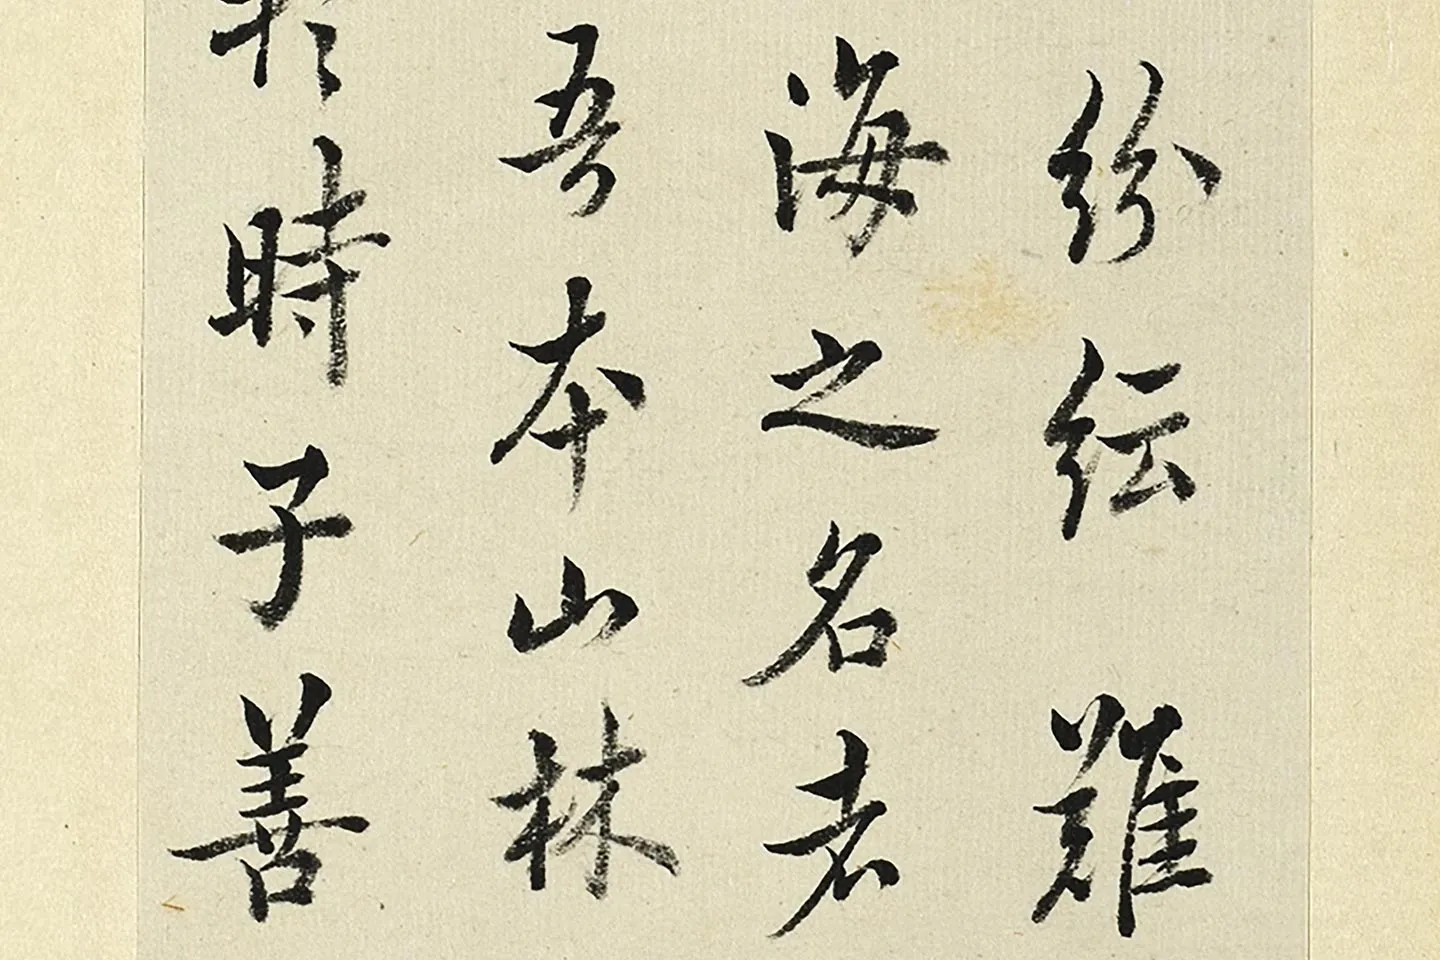 紛紜難
海之名者
吾本山林
於時子善